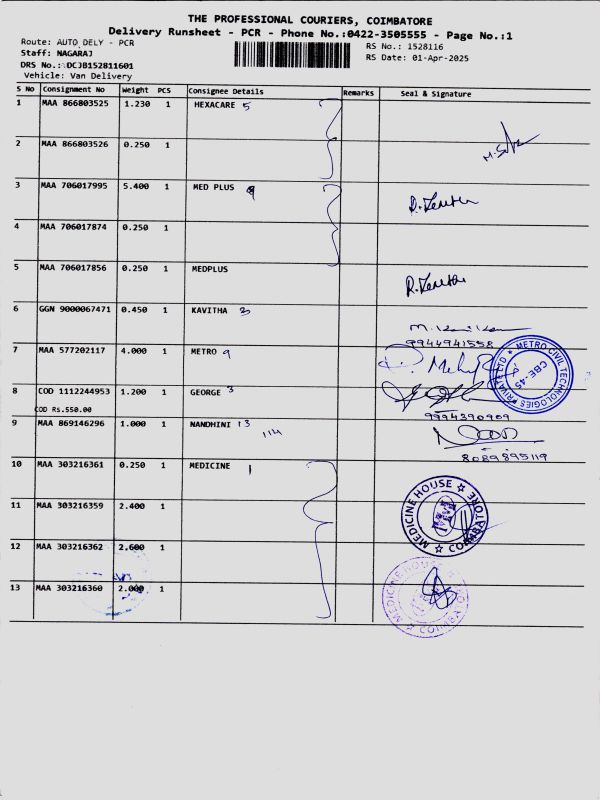 THE PROFESSIONAL COURIERS, COIMBATORE
Delivery Runsheet - PCR - Phone No.:0422-3505555 - Page No.:1
Route: AUTO DELY - PCR
RS No.: 1528116
Staff: NAGARAJ
RS Date: 01-Apr-2025
DRS No.: DCJB152811601
Vehicle: Van Delivery
S No Consignment No Weight PCS Consignee Details Remarks Seal & Signature
1 MAA 866803525 1.230 1 HEXACARE 5
2 MAA 866803526 0.250 1
3 MAA 706017995 5.400 1 MED PLUS
4 MAA 706017874 0.250 1
5 MAA 706017856 0.250 1 MEDPLUS
6 GGN 9000067471 0.450 1 KAVITHA 3
9944941558
7 MAA 577202117 4.000 1 METRO 9
METRO CIVIL TECHNOLOGIES PRIVATE LTD
CBE-45
8 COD 1112244953 1.200 1 GEORGE 3
COD Rs.550.00
9994390909
9 MAA 869146296 1.000 1 NANDHINI 13
8089895119
10 MAA 303216361 0.250 1 MEDICINE 1
11 MAA 303216359 2.400 1
MEDICINE HOUSE COIMBATORE
12 MAA 303216362 2.600 1
13 MAA 303216360 2.000 1
MEDICINE HOUSE COIMBATORE